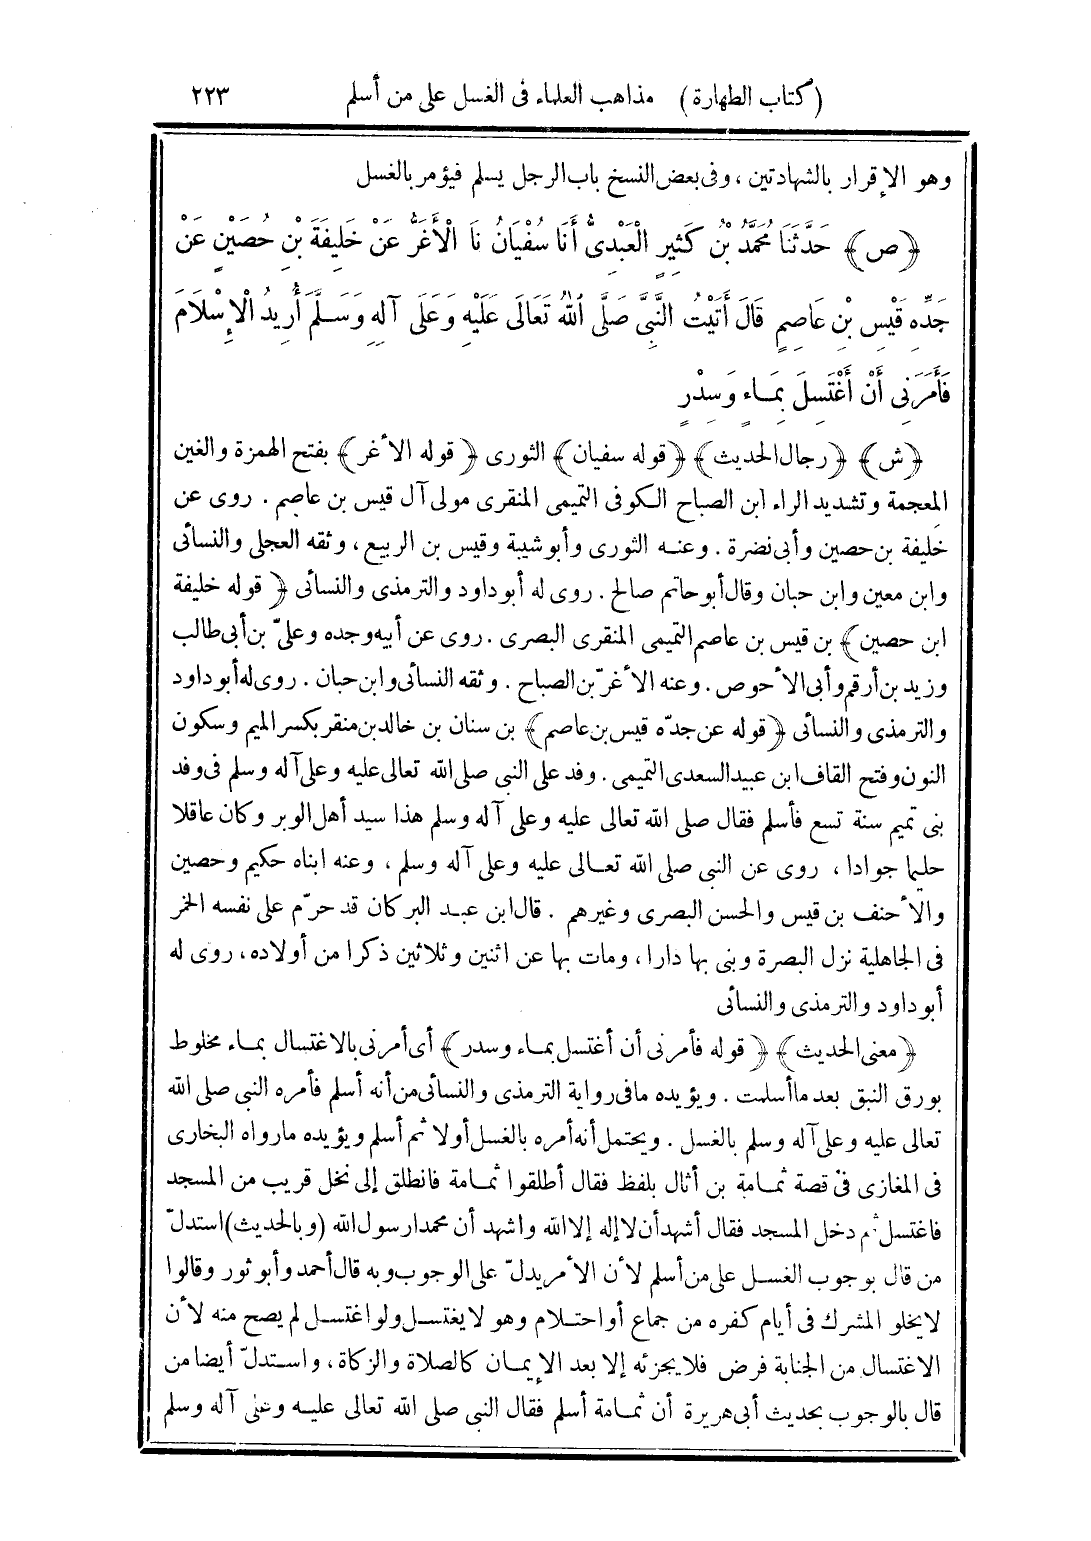 (كتاب الطهارة) مذاهب العلماء فى الغسل على من أسلم ٢٢٣
وهو الإقرار بالشهادتين ، وفى بعض النسخ باب الرجل يسلم فيؤمر بالغسل
﴿ص﴾ حَدَّثَنَا مُحَمَّدُ بْنُ كَثِيرٍ الْعَبْدِىُّ أَنَا سُفْيَانُ نَا الْأَغَرُّ عَنْ خَلِيفَةَ بْنِ حُصَيْنٍ عَنْ
جَدِّهِ قَيْسِ بْنِ عَاصِمٍ قَالَ أَتَيْتُ النَّبِىَّ صَلَّى اللهُ تَعَالَى عَلَيْهِ وَعَلَى آلِهِ وَسَلَّمَ أُرِيدُ الْإِسْلَامَ
فَأَمَرَنِى أَنْ أَغْتَسِلَ بِمَاءٍ وَسِدْرٍ
﴿ش﴾ ﴿رجال الحديث﴾ ﴿قوله سفيان﴾ الثورى ﴿قوله الأغر﴾ بفتح الهمزة والغين
المعجمة وتشديد الراء ابن الصباح الكوفى التميمى المنقرى مولى آل قيس بن عاصم . روى عن
خليفة بن حصين وأبى نضرة . وعنه الثورى وأبو شيبة وقيس بن الربيع ، وثقه العجلى والنسائى
وابن معين وابن حبان وقال أبو حاتم صالح . روى له أبو داود والترمذى والنسائى ﴿قوله خليفة
ابن حصين﴾ بن قيس بن عاصم التميمى المنقرى البصرى . روى عن أبيه وجده وعلىّ بن أبى طالب
وزيد بن أرقم وأبى الأحوص . وعنه الأغرّ بن الصباح . وثقه النسائى وابن حبان . روى له أبو داود
والترمذى والنسائى ﴿قوله عن جدّه قيس بن عاصم﴾ بن سنان بن خالد بن منقر بكسر الميم وسكون
النون وفتح القاف ابن عبيد السعدى التميمى . وفد على النبى صلى الله تعالى عليه وعلى آله وسلم فى وفد
بنى تميم سنة تسع فأسلم فقال صلى الله تعالى عليه وعلى آله وسلم هذا سيد أهل الوبر وكان عاقلا
حليما جوادا ، روى عن النبى صلى الله تعالى عليه وعلى آله وسلم ، وعنه ابناه حكيم وحصين
والأحنف بن قيس والحسن البصرى وغيرهم . قال ابن عبد البر كان قد حرّم على نفسه الخمر
فى الجاهلية نزل البصرة وبنى بها دارا ، ومات بها عن اثنين وثلاثين ذكرا من أولاده ، روى له
أبو داود والترمذى والنسائى
﴿معنى الحديث﴾ ﴿قوله فأمرنى أن أغتسل بماء وسدر﴾ أى أمرنى بالاغتسال بماء مخلوط
بورق النبق بعد ما أسلمت . ويؤيده ما فى رواية الترمذى والنسائى من أنه أسلم فأمره النبى صلى الله
تعالى عليه وعلى آله وسلم بالغسل . ويحتمل أنه أمره بالغسل أولا ثم أسلم ويؤيده ما رواه البخارى
فى المغازى فى قصة ثمامة بن أثال بلفظ فقال أطلقوا ثمامة فانطلق إلى نخل قريب من المسجد
فاغتسل ثم دخل المسجد فقال أشهد أن لا إله إلا الله واشهد أن محمدا رسول الله (وبالحديث) استدلّ
من قال بوجوب الغسل على من أسلم لأن الأمر يدلّ على الوجوب وبه قال أحمد وأبو ثور وقالوا
لا يخلو المشرك فى أيام كفره من جماع أو احتلام وهو لا يغتسل ولو اغتسل لم يصح منه لأن
الاغتسال من الجنابة فرض فلا يجزئه إلا بعد الإيمان كالصلاة والزكاة ، واستدلّ أيضا من
قال بالوجوب بحديث أبى هريرة أن ثمامة أسلم فقال النبى صلى الله تعالى عليه وعلى آله وسلم